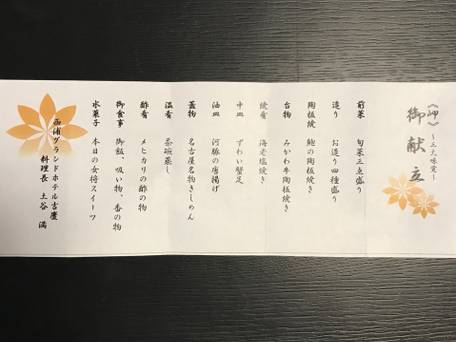 《岬》 ～三大味覚～
御献立
前菜 旬菜三点盛り
造り お造り四種盛り
陶板焼 鮑の陶板焼き
台物 みかわ牛陶板焼き
焼肴 海老塩焼き
中皿 ずわい蟹足
油皿 河豚の唐揚げ
蓋物 名古屋名物きしめん
温肴 茶碗蒸し
酢肴 メヒカリの酢の物
御食事 御飯、吸い物、香の物
水菓子 本日の女将スイーツ
西浦グランドホテル吉慶
料理長 土谷 満